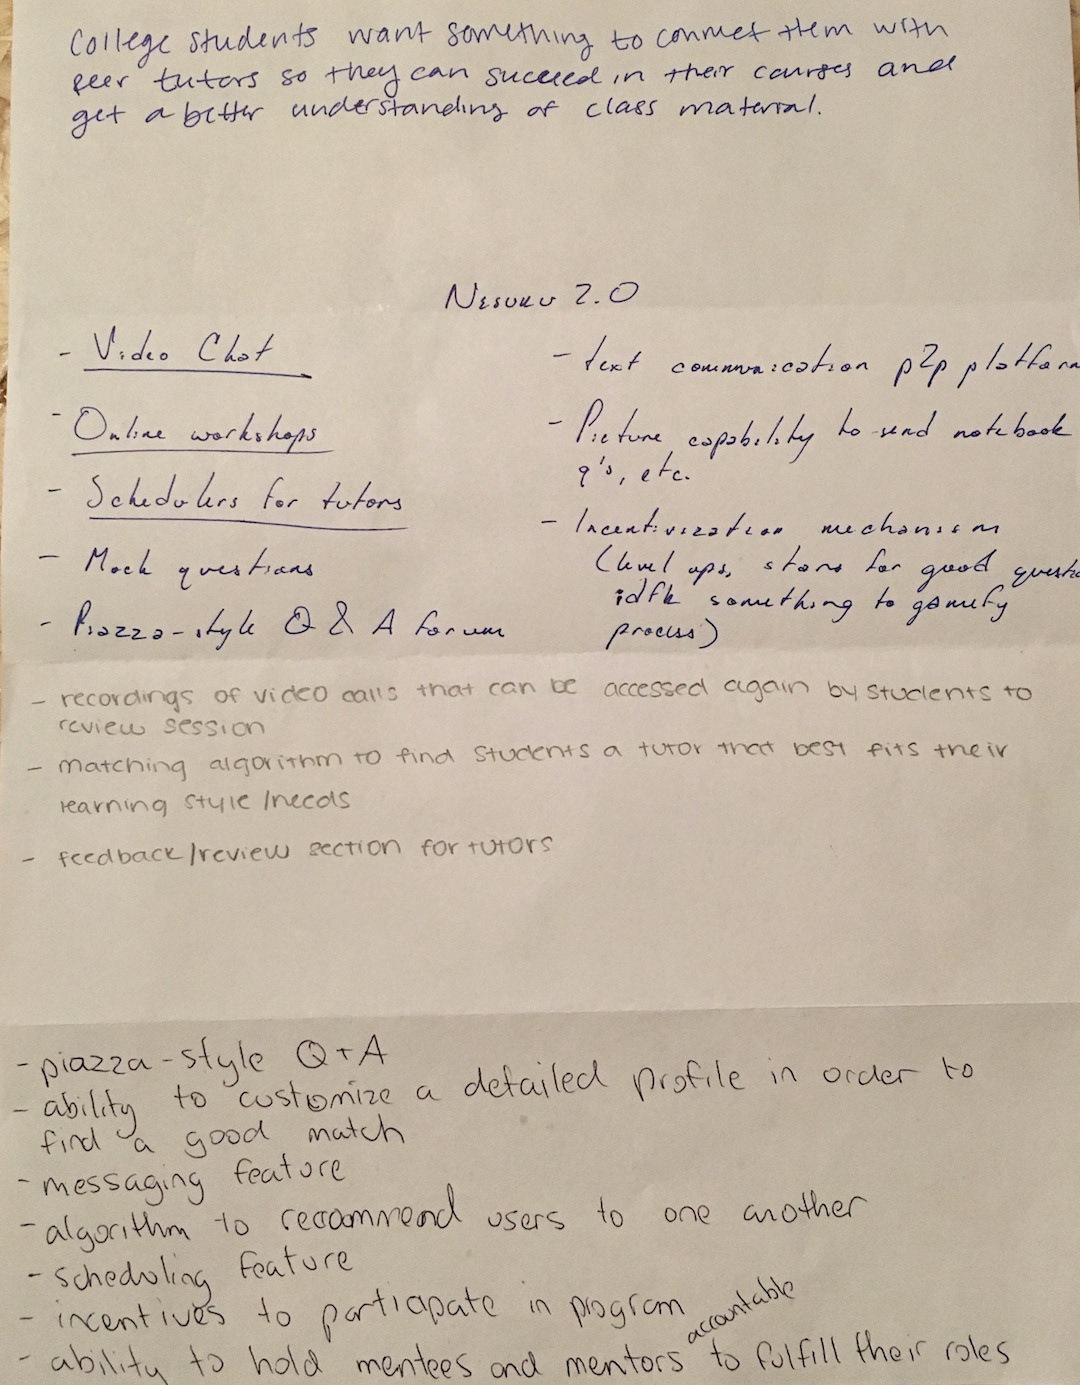 College students want something to connect them with
peer tutors so they can succeed in their courses and
get a better understanding of class material.
2.0
- Video Chat
- Online workshops
- Schedulers for tutors
- Mock questions
- Piazza-style Q & A forum
- text communication p2p platform
- Picture capability to send notebook
q's, etc.
- Incentivization mechanism
(level ups, stars for good
idfk something to gamify
process)
- recordings of video calls that can be accessed again by students to
review session
- matching algorithm to find students a tutor that best fits their
learning style/needs
- feedback/review section for tutors
- piazza-style Q+A
- ability to customize a detailed profile in order to
find a good match
- messaging feature
- algorithm to recommend users to one another
- scheduling feature
- incentives to participate in program
- ability to hold mentees and mentors accountable to fulfill their roles